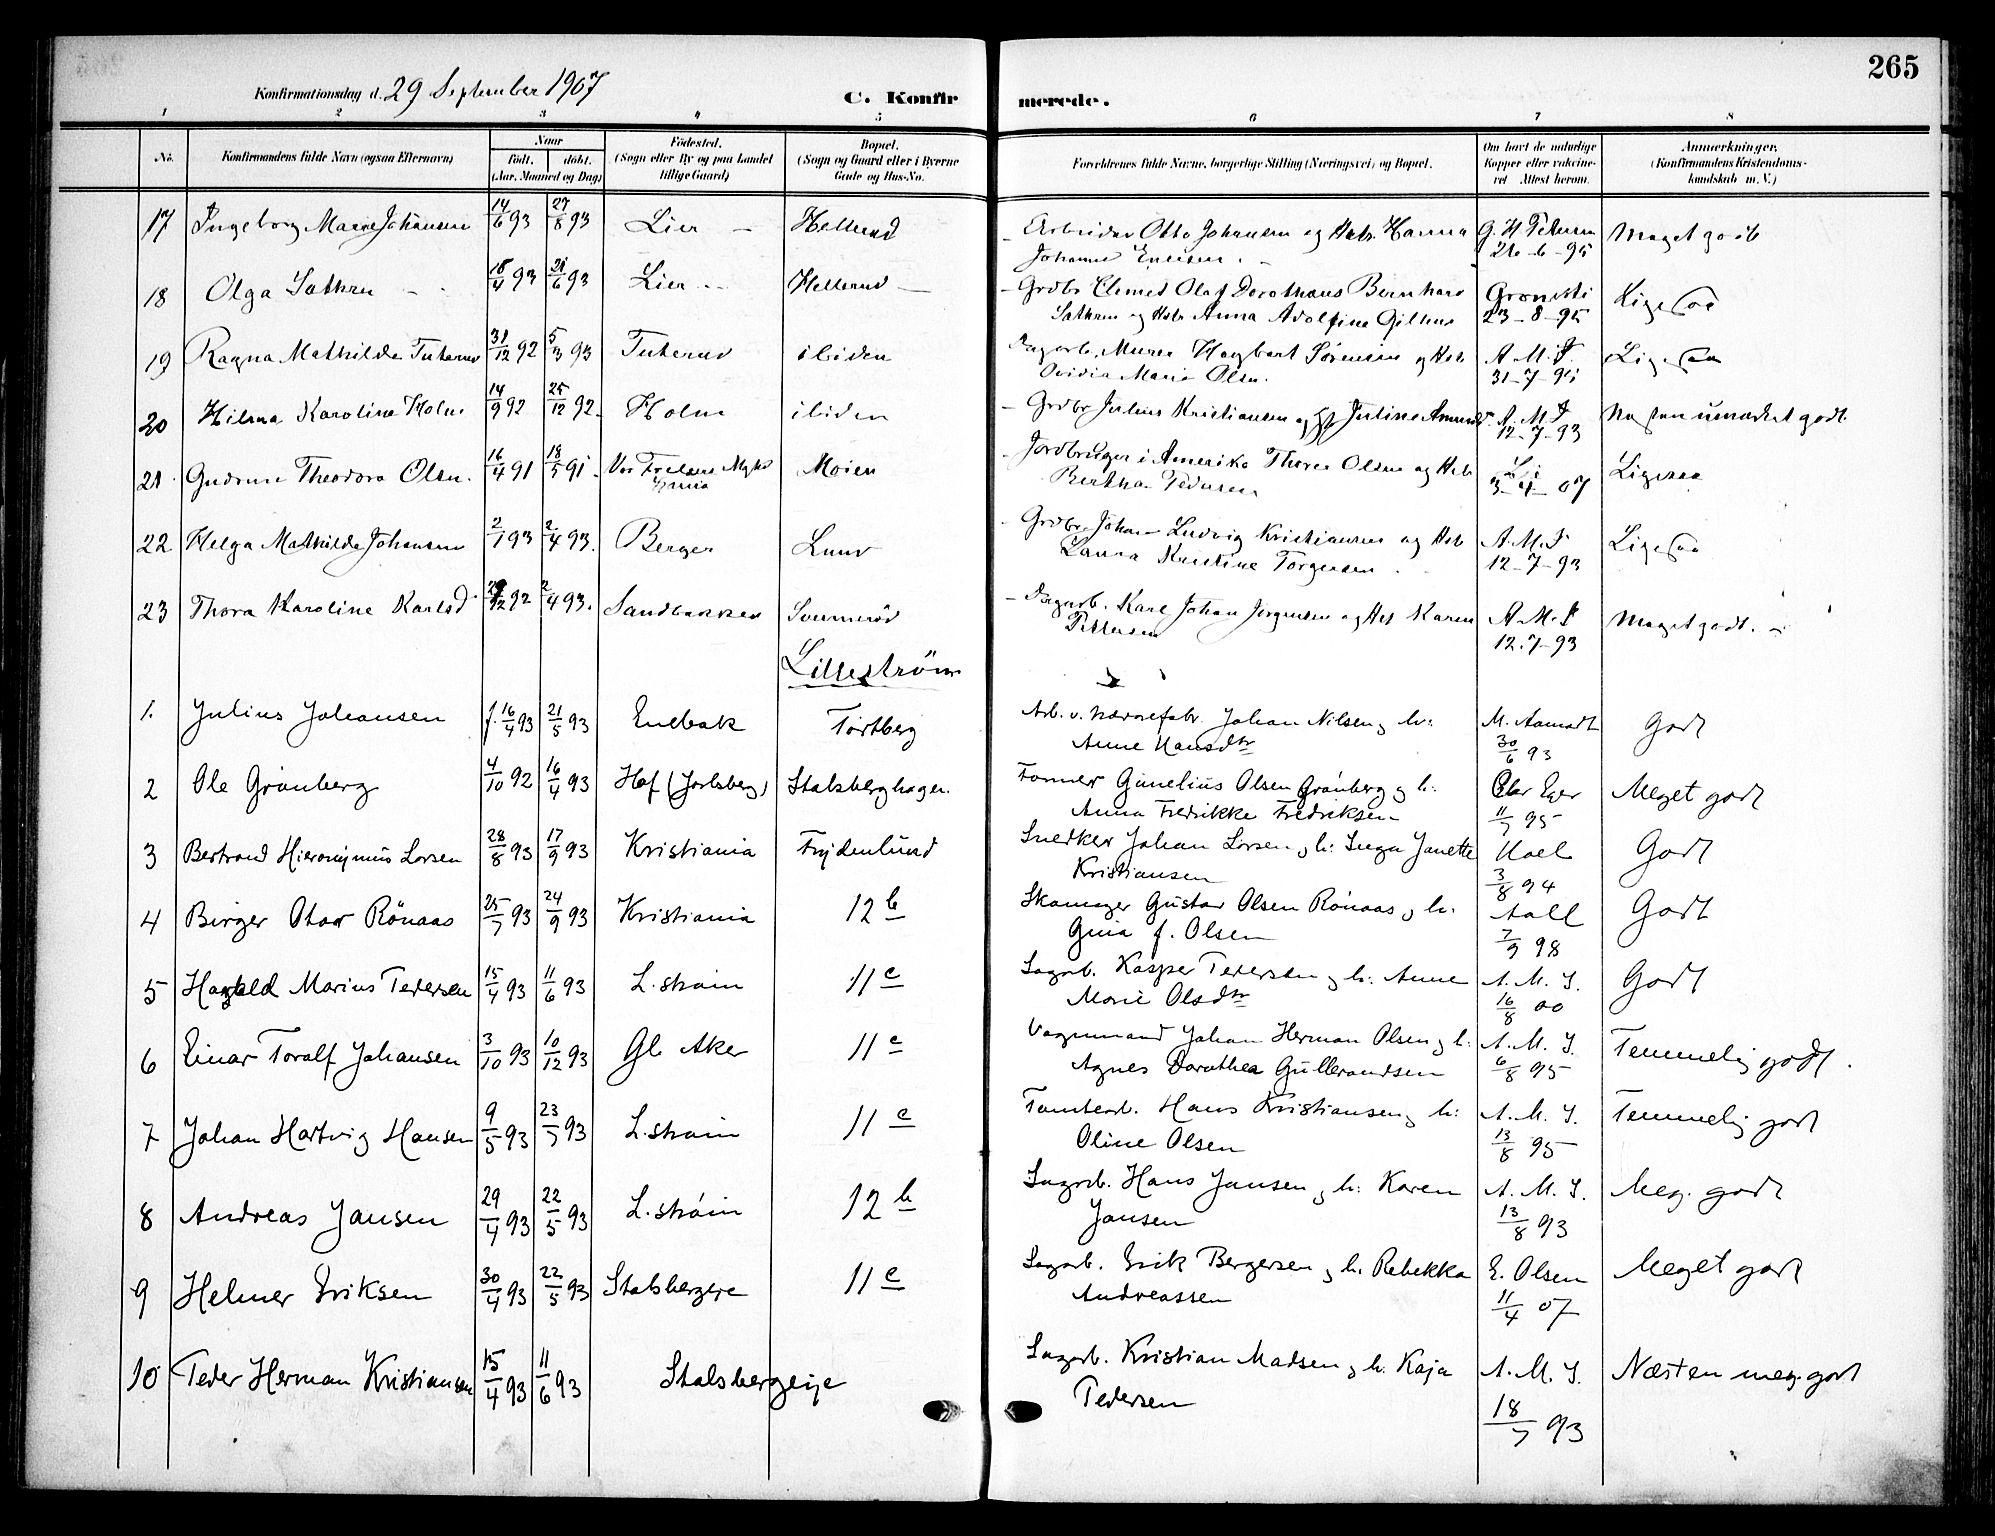 265
Konfirmationsdag d. 29 September 1907
C. Konfirmerede.
1 2 3 4 5 6 7 8
No. Konfirmandens fulde Navn (ogsaa Efternavn) Naar født. døbt. (Aar, Maaned og Dag) Fødested. (Sogn eller By og paa Landet tillige Gaard) Bopæl. (Sogn og Gaard eller i Byerne Gade og Hus-No. Forældrenes fulde Navne, borgerlige Stilling (Næringsvei) og Bopæl. Om havt de naturlige Kopper eller vaccineret Attest herom. Anmærkninger. (Konfirmandens Kristendomskundskab m. V.)
17 Ingeborg Marie Johansen 14/6 93 27/8 93 Lier Hellerud Arbeider Otto Johansen og Hstr. Hanna G. H. Petersen Meget godt
Johanne 26-6-95
18 Olga Sæthre 18/4 93 21/6 93 Lier Hellerud Grdbr. Olaf Dorotheus Bernhard 23-8-95 Ligesaa
Sæthren og Hstr Anna Adolfine Gilhus
19 Ragna Mathilde Tuterud 31/12 92 5/3 93 Tuterud ibiden Dagarb. Murer Hagbart Sørensen og Hstr A. M. J. Ligesaa
Ovidia Marie Olsn. 31-7-95
20 Hilma Karoline Holm 14/9 92 25/12 92 Holm ibiden Grdbr Julius Kristiansen og Hst Juline Amunds. A. M. J. Næsten udmærket godt.
12-7-93
21 Gudrun Theodora Olsn. 16/4 91 18/5 91 Vor Frelsers Mgh Moien Jordbruger i Amerika Thorer Olsen og Hstr Ligesaa
Bertha Pedersen 3-4-07
22 Helga Mathilde Johansen 2/1 93 2/4 93. Berger Lund Grdbr. Johan Ludvig Kristiansen og Hstr A. M. J. Ligesaa
Laura Kristine Torgersen 12-7-93
23 Thora Karoline Karlsd. /12 92 2/4 93. Sandbakken Svenneröd Dagarb. Karl Johan Jørgensen og Hst Karen A. M. J Meget godt.
Pettersen 12.7-93
Lilleström
1. Julius Johansen f. 16/4 93 21/5 93 Enebak Tortberg Arb. v. Johan Nilsen og h: M. Aamodt Godt
Anne Hansdtr 30/6 93
2 Ole Grønberg 4/10 92 16/4 93 Hof (Jarlsberg) Stalsberghagen. Former Gunelius Olsen Grønberg og h: Olar Eger Meget godt
Anna Fredrikke Fredriksen 11/7 95
3 Bertrand Hieronymus Larsen 28/8 93 17/9 93 Kristiania Frydenlund Snedker Johan Larsen og h: Inga Janette Hoel Godt
Kristiansen 3/8 94
4 Birger Otar Rönaas 25/7 93 24/9 93 Kristiania 12 b Skomager Gustav Olsen Rönaas og h: Aall Godt
Gina f. Olsen 7/9 98
5 Harald Marius Pedersen 15/4 93 11/6 93 L.strøm 11 c Sagarb. Kasper Pedersen og h: Anne A. M. J. Godt
Marie Olsdtr 16/8 00
6 Einar Toralf Johansen 3/10 93 10/12 93 Gl. Aker 11 c Vognmand Johan Herman Olsen og h: A. M. J. Temmelig godt.
Agnes Dorothea Gulbrandsen 6/8 95
7 Johan Hartvig Hansen 9/5 93 23/7 93 L.strøm 11 c Tomtearb. Hans Kristiansen og h: A. M. J. Temmelig godt
Oline Olsen 13/8 95
8 Andreas Jansen 29/4 93 22/5 93 L.strøm 12 b Sagarb. Hans Jansen og h: Karen A. M. J. Meg. godt
Jansen 13/8 93
9 Helmer Eriksen 30/4 93 22/5 93 Stalsbergeie 11 c Sagarb. Erik Bergersen og h. Rebekka E. Olsen Meget godt
Andreassen 11/4 07
10 Peder Herman Kristiansen 15/4 93 11/6 93 Stalsbergeije Sagarb. Kristian Madsen og h. Kaja A. M. J. Næsten meg. godt
Pedersen 18/7 93